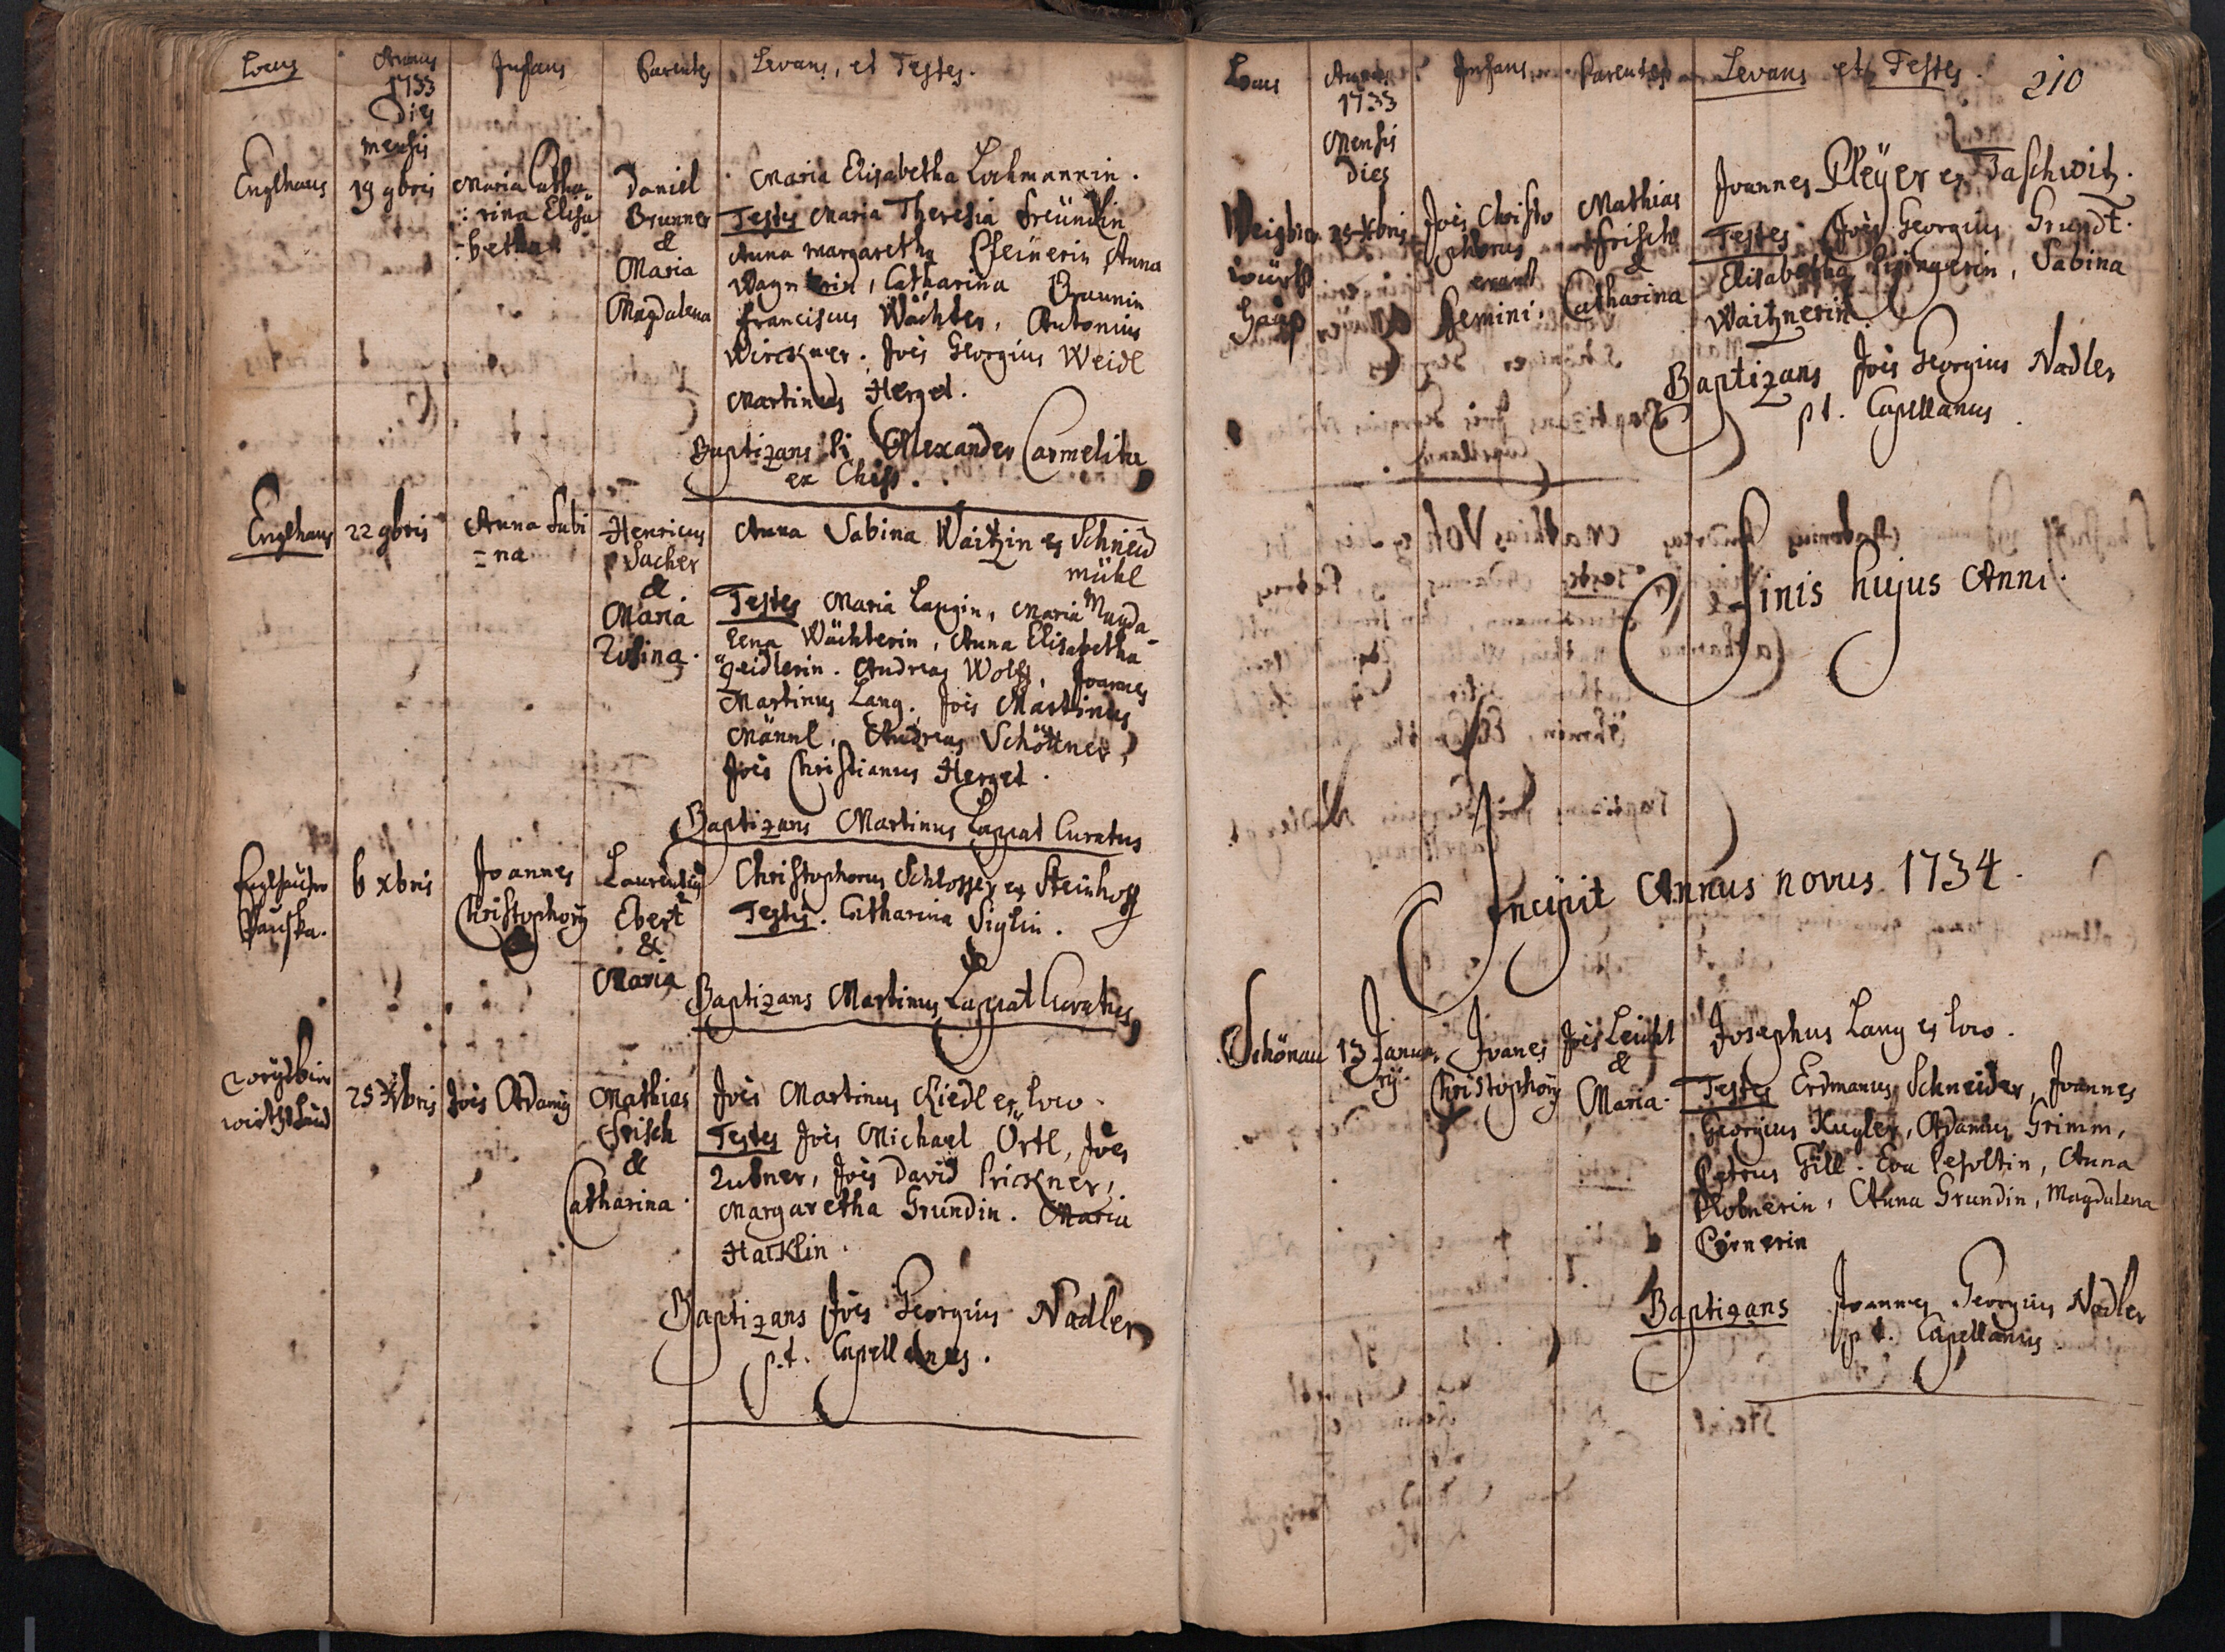 Locus
Annus
1733
Dies
mensis
Infans
Parentes
Levans, et Testes.
Englhaus
19 9bris
Maria Catha
:rina Elisa
:betha
Daniel
Brunner
&
Maria
Magdalena
Maria Elisabetha Lochmannin.
Testes Maria Theresia Freündlin
Anna Margaretha Pfeinerin Anna
Wagnerin, Catharina Braunin
Franciscus Wächter, Antonius
Wirckner. Jois Georgius Weidl
Martinus Herget.
Baptizans P. Alexander Carmelita
ex Chiss.
Englhaus
22 9bris
Anna Sabi
=na
Henricus
Sacher
&
Maria
Anna Sabina Waitzin ex Schneid
mühl
Testes Maria Langin, Maria Magda
lena Wächterin, Anna Elisabetha
Zeidlerin. Andreas Wolff, Joannes
Martinus Lang. Jois Martinus
Männl, Andreas Schöttner,
Jois Christianus Herget.
Baptizans Martinus Lappat Curatus
6 xbris
Joannes
Christophorg
Laurentig
Ebert
&
Maria
Christophorus Schlosser ex Steinhoff
Testis. Catharina Siglin.
Baptizans Martinus Lappat Curatus
25 Xbris
Jois Adamg
Mathias
Frisch
&
Catharina.
Jois Martinus Riedl ex loco.
Testes Jois Michael Örtl, Jois
Zubner, Jois David Prickner,
Margaretha Grundin. Maria
Hacklin.
Baptizans Jois Georgius Nadler
p.t. Capellanus.
Locus
Annus
1733
Mensis
Dies
Infans
Parentes
Levans et Testes.
210
25 Xbris
Jois Christo
phorus
erant
Gemini.
Mathias
Frisch
&
Catharina
Joannes Pleÿer ex Daschwitz.
Testes Jois Georgius Grundt.
Elisabetha, Sabina
Waitznerin.
Baptizans Jois Georgius Nadler
pt. Capellanus.
Finis hujus Anni.
Incipit Annus novus 1734.
Schönau
13 Janua
rij.
Joanes
Christophorg
Jois Leicht
&
Maria.
Josephus Lang ex loco.
Testes Erdmanus Schneider, Joannes
Georgius Kugler, Adamus Grimm,
Petrus Gill. Eva Pesoltin, Anna
Anna Grundin, Magdalena
Baptizans Joannes Georgius Nadler
p t. Capellanus